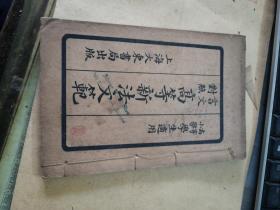 高等小學學生適用
言文對照
高等新法文範
上海大東書局出版